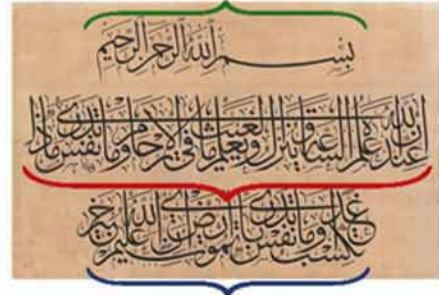 بسم الله الرحمن الرحيم
إن الله عنده علم الساعة وينزل الغيث ويعلم ما في الأرحام وما تدري نفس ماذا
تكسب غدا وما تدري نفس بأي أرض تموت إن الله عليم خبير